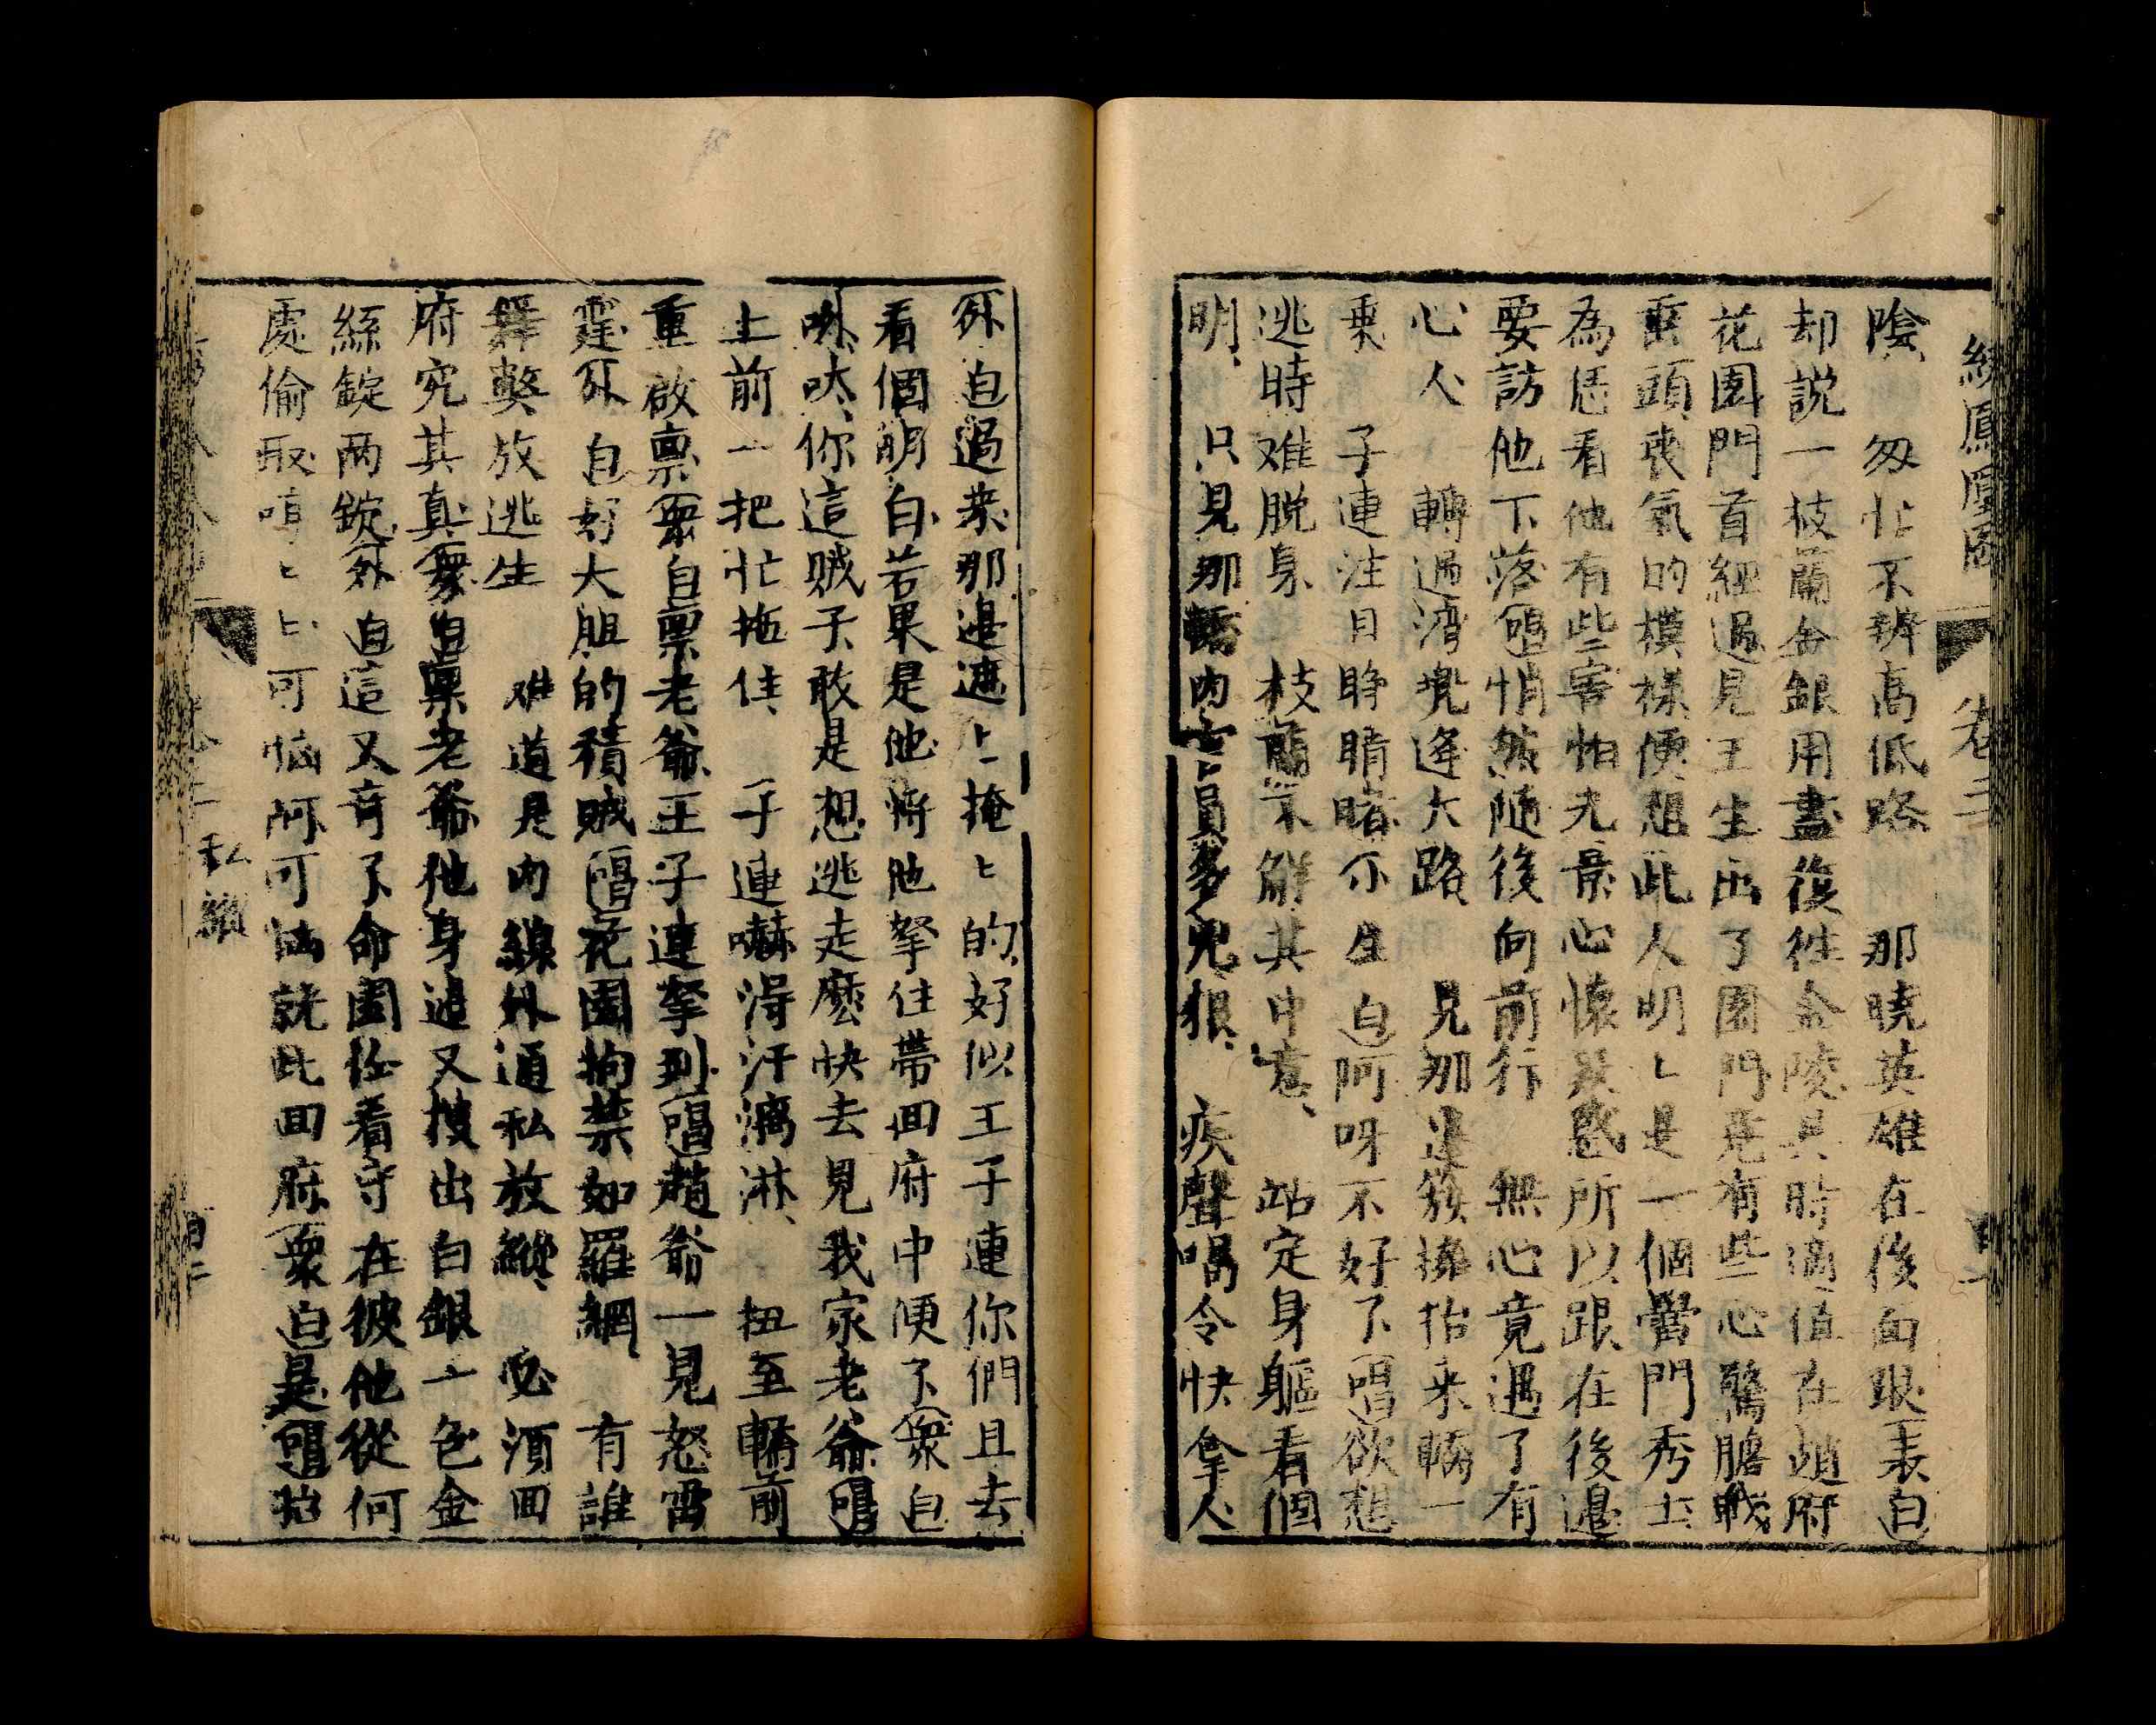 繡鳳凰図 卷三
陰、 匆忙不辨高低路 那曉英雄在後面跟 表白
却説一枝蘭金銀用盡復徃金陵其時適值在趙府
花园門首經過見王生出了園門竟有些心驚膽戰
垂頭喪氣的模様便想此人明〻是一個黌門秀士
為恁看他有些害怕光景心懐異惑所以跟在後邉
要訪他下落 唱 悄然隨後向前行 無心竟遇了有
心人 轉過湾兠逢大路 見那 簇擁抬来轎一
乗 子連注目睁睛睹 不生 白 阿呀不好了 唱 欲想
逃時难脱身 枝蘭不觧其中意、 站定身軀看個
明、 只見那轎内 員多兇狠、 疾聲喝令快拿人
外白 過来那邉遮〻掩〻的、好似王子連你們且去
看個明白若果是他将他拏住帶回府中便了 衆白
呔、你這贼子敢是想逃走麽快去見我家老爺 唱
上前一把忙拖住 子連嚇淂汗漓淋、 扭至轎前
重啟禀 衆白 禀老爺王子連拏到 唱 趙爺一見怒雷
霆 外白 好大胆的積贼 唱 花園拘禁如羅網、 有誰
舞獘放逃生 难道是内線外通私放縱、 必湏回
府究其真 衆白 禀老爺他身邉又搜出白銀一包金
絲錠両錠 外白 這又奇了命園丁看守在彼他從何
處偷取 〻〻可惱阿可惱就此回府 衆白 是 唱 抬
私縱